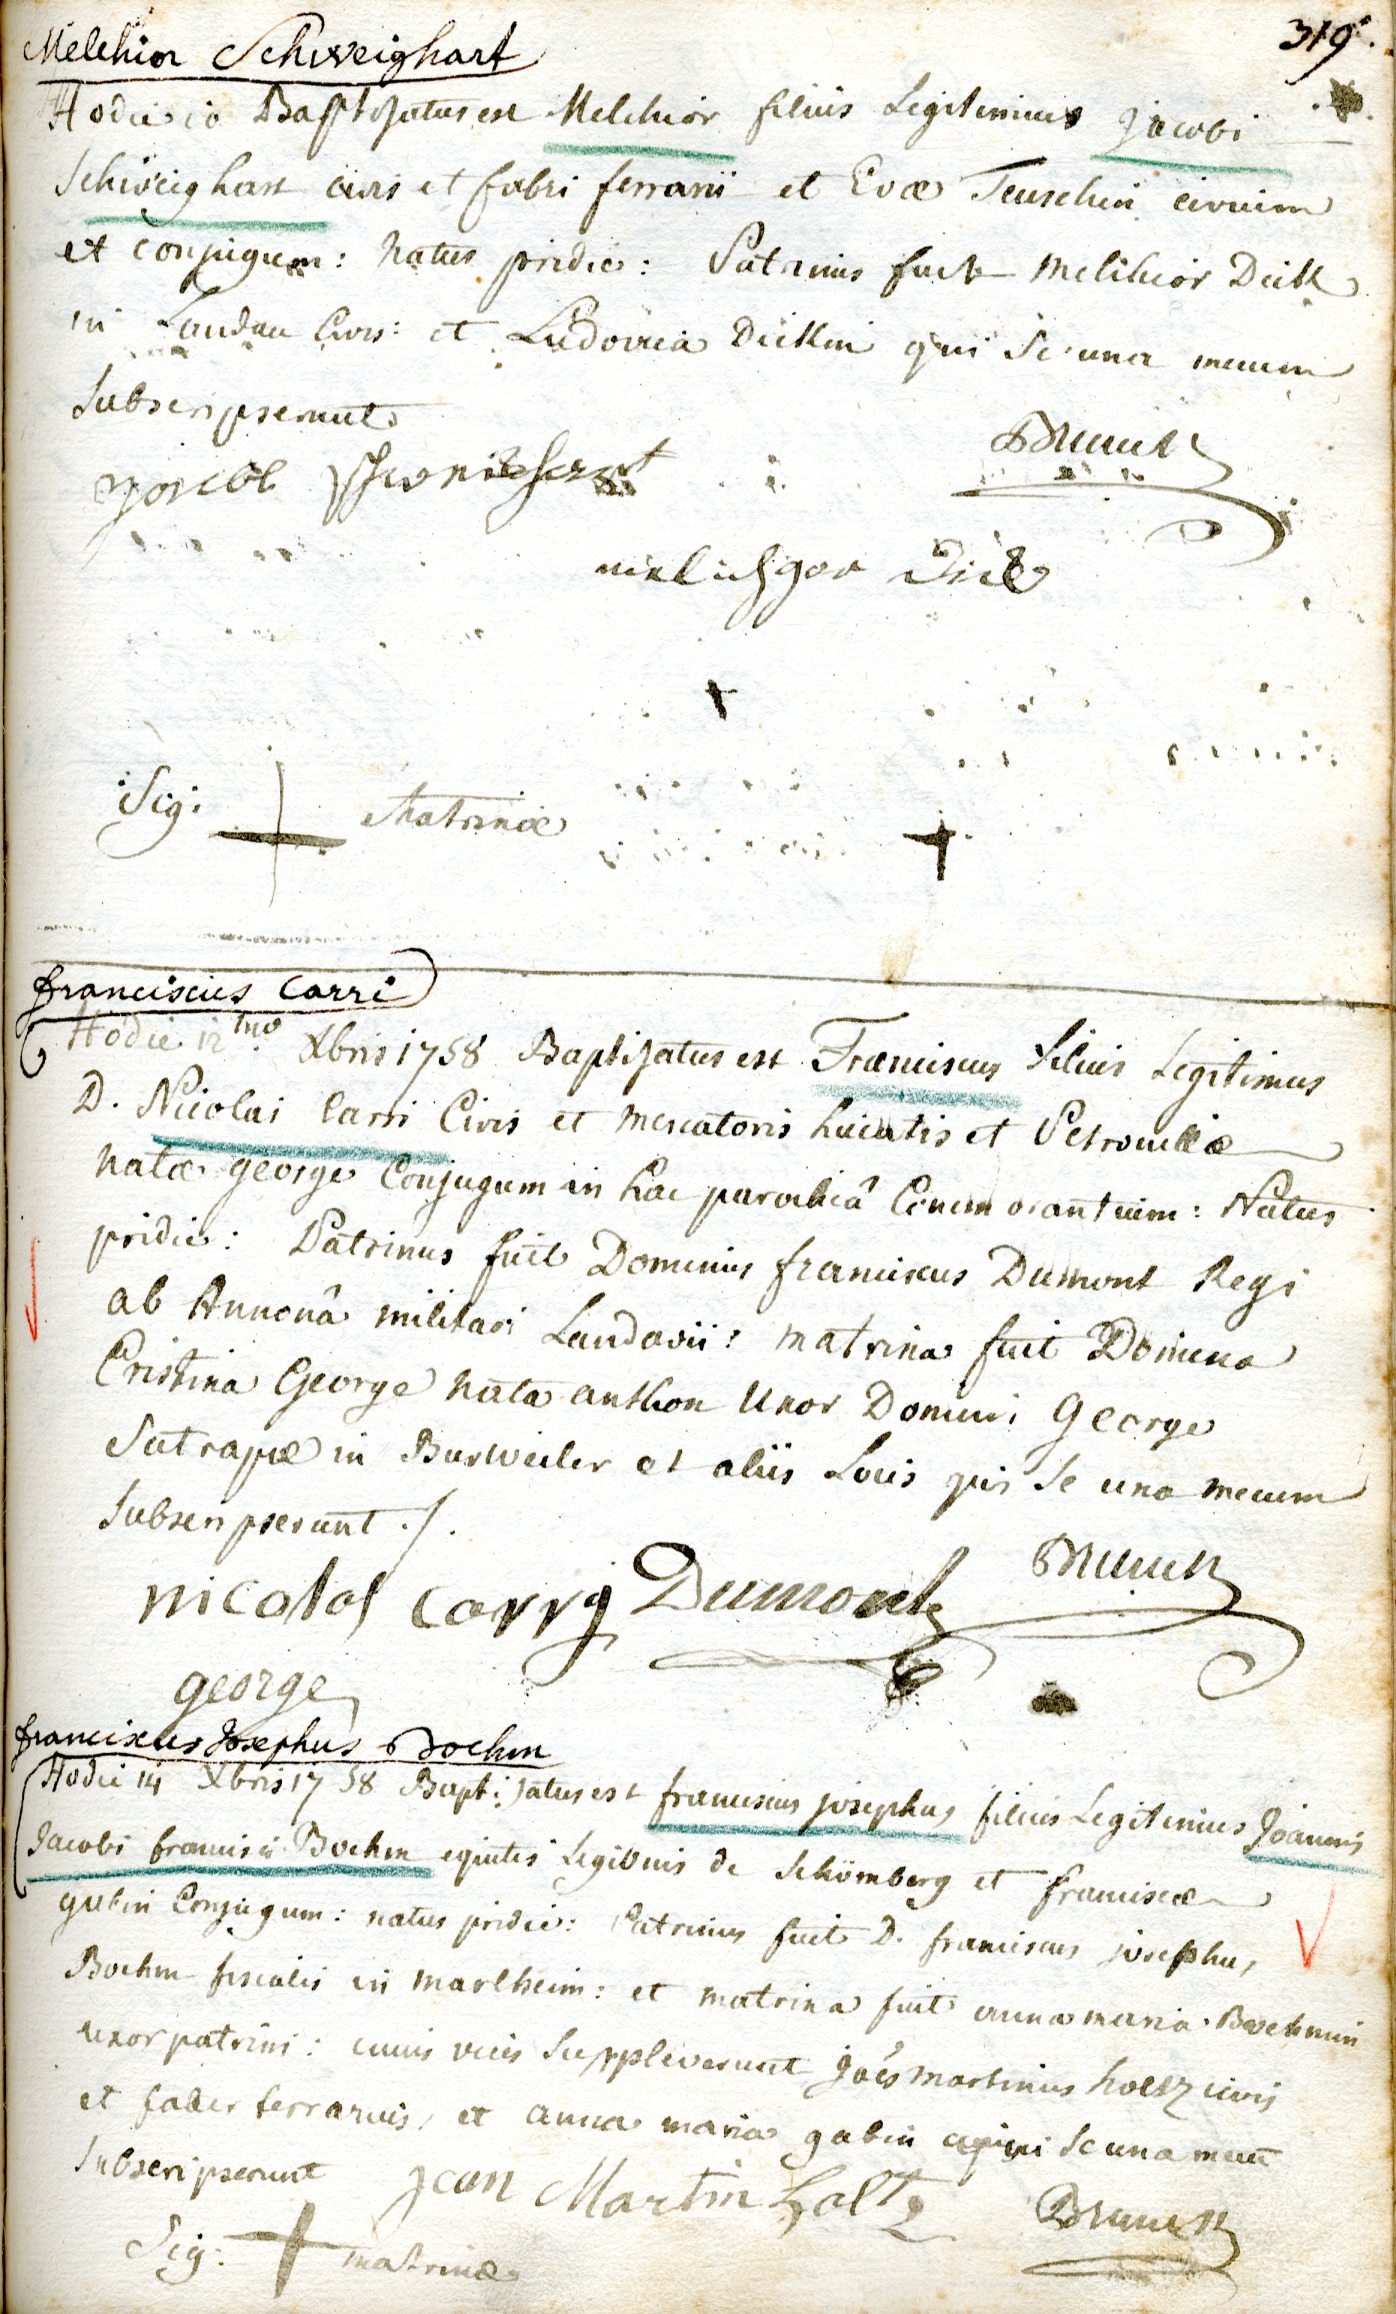 319.
Melchior Schweighart
Hodie 10 Baptisatus est Melchior filius Legitimus Jacobi
Schweighart civis et fabri ferrarii et Evæ Teuschin civium
et conjugum: natus pridie: Patrinus fuit Melchior Dick
in Landau Civis: et Ludovica Dickin qui se una mecum
subscripserunt
Brunck
melichgor Dick
Sig: Matrinæ
franciscus Carri
Hodie 12 Xbris 1758 Baptisatus est Franciscus filius Legitimus
D. Nicolai Carri Civis et mercatoris huiatis et Petronillæ
natæ george Conjugum in hac parochiâ Commorantium: Natus
pridie: Patrinus fuit Dominus franciscus Dumont Regi
ab Annonâ militari Landavii: matrina fuit Domina
Cristina George nata anthon Uxor Domini George
Satrapæ in Burweiler et aliis Locis qui se una mecum
subscripserunt ./.
nicolas carry Dumont Brunck
george
franciscus Josephus Boehm
Hodie 14 Xbris 1758 Baptisatus est franciscus josephus filius Legitimus Joannis
Jacobi francisci Boehm equitis Legionis de Schömberg et franciscæ
gabin Conjugum: natus pridie: Patrinus fuit D. franciscus josephus
Boehm fiscalis in marlheim: et matrina fuit anna maria Boehmin
uxor patrini: cuius vices suppleverunt Joës martinus holtz civis
et faber ferrarius, et anna maria gabin qui se una mecū
subscripserunt Jean Martin Holtz Brunck
Sig: matrinæ